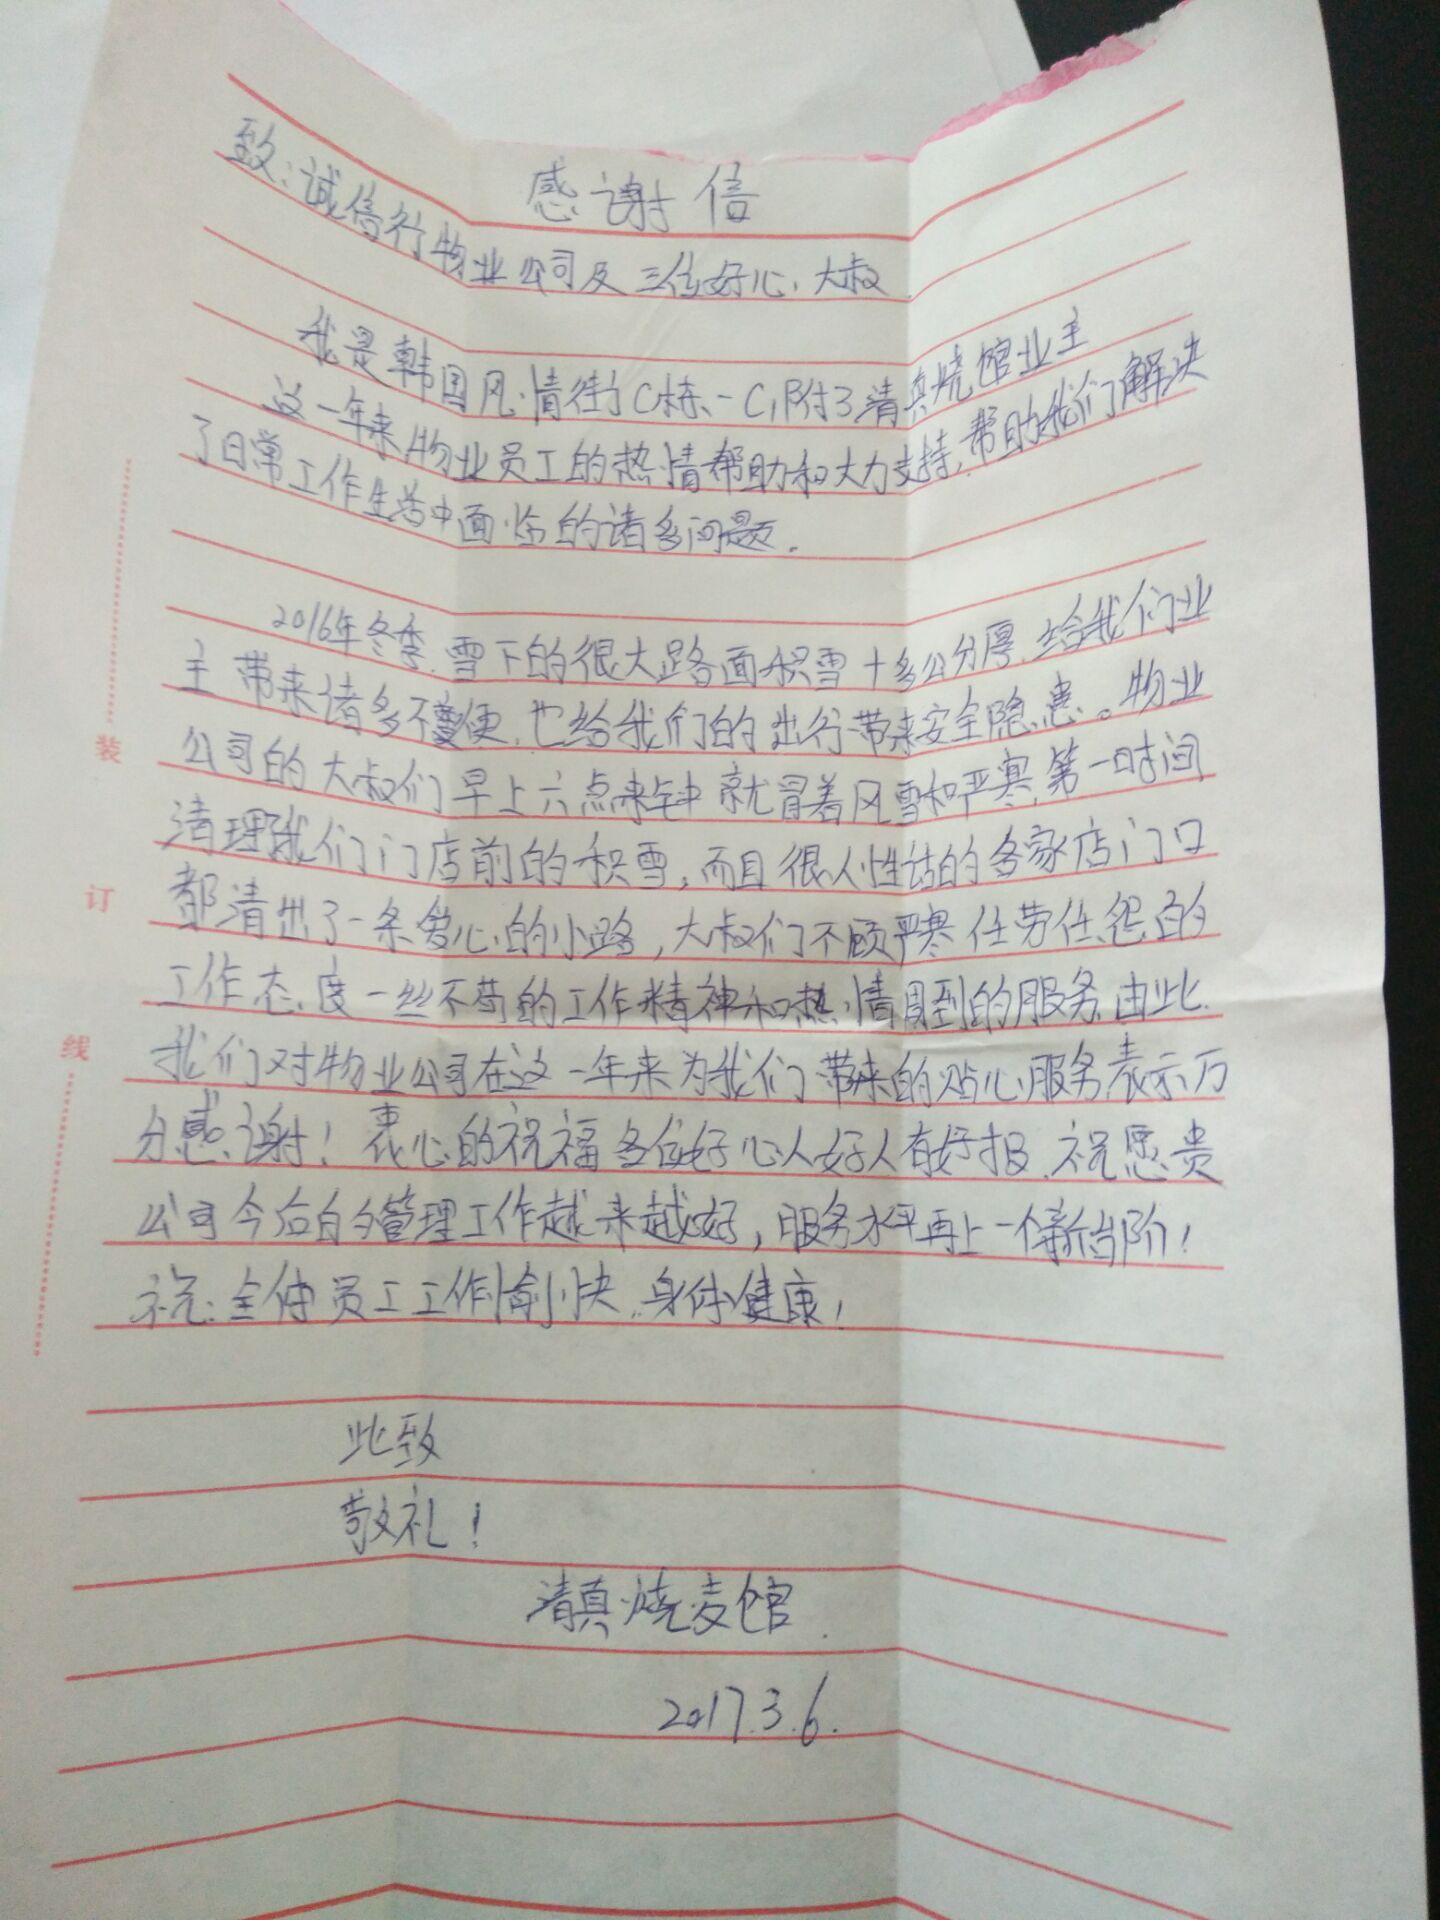 感谢信
致:诚信行物业公司及三位好心大叔
我是韩国风情街C栋-C1附3清真烧馆业主
这一年来,物业员工的热情帮助和大力支持,帮助我们解决
了日常工作生活中面临的诸多问题。
2016年冬季,雪下的很大路面积雪十多公分厚,给我们业
主带来诸多不便,也给我们的出行带来安全隐患。物业
公司的大叔们早上六点来钟就冒着风雪和严寒,第一时间
清理我们门店前的积雪,而且很人性话的各家店门口
都清出了一条爱心的小路,大叔们不顾严寒任劳任怨的
工作态度一丝不苟的工作精神和热情周到的服务,由此
我们对物业公司在这一年来为我们带来的贴心服务表示万
分感谢!衷心的祝福各位好心人好人有好报,祝愿贵
公司今后的管理工作越来越好,服务水平再上一个新台阶!
祝:全体员工工作愉快,身体健康!
此致
敬礼!
清真烧麦馆
2017.3.6.
装
订
线